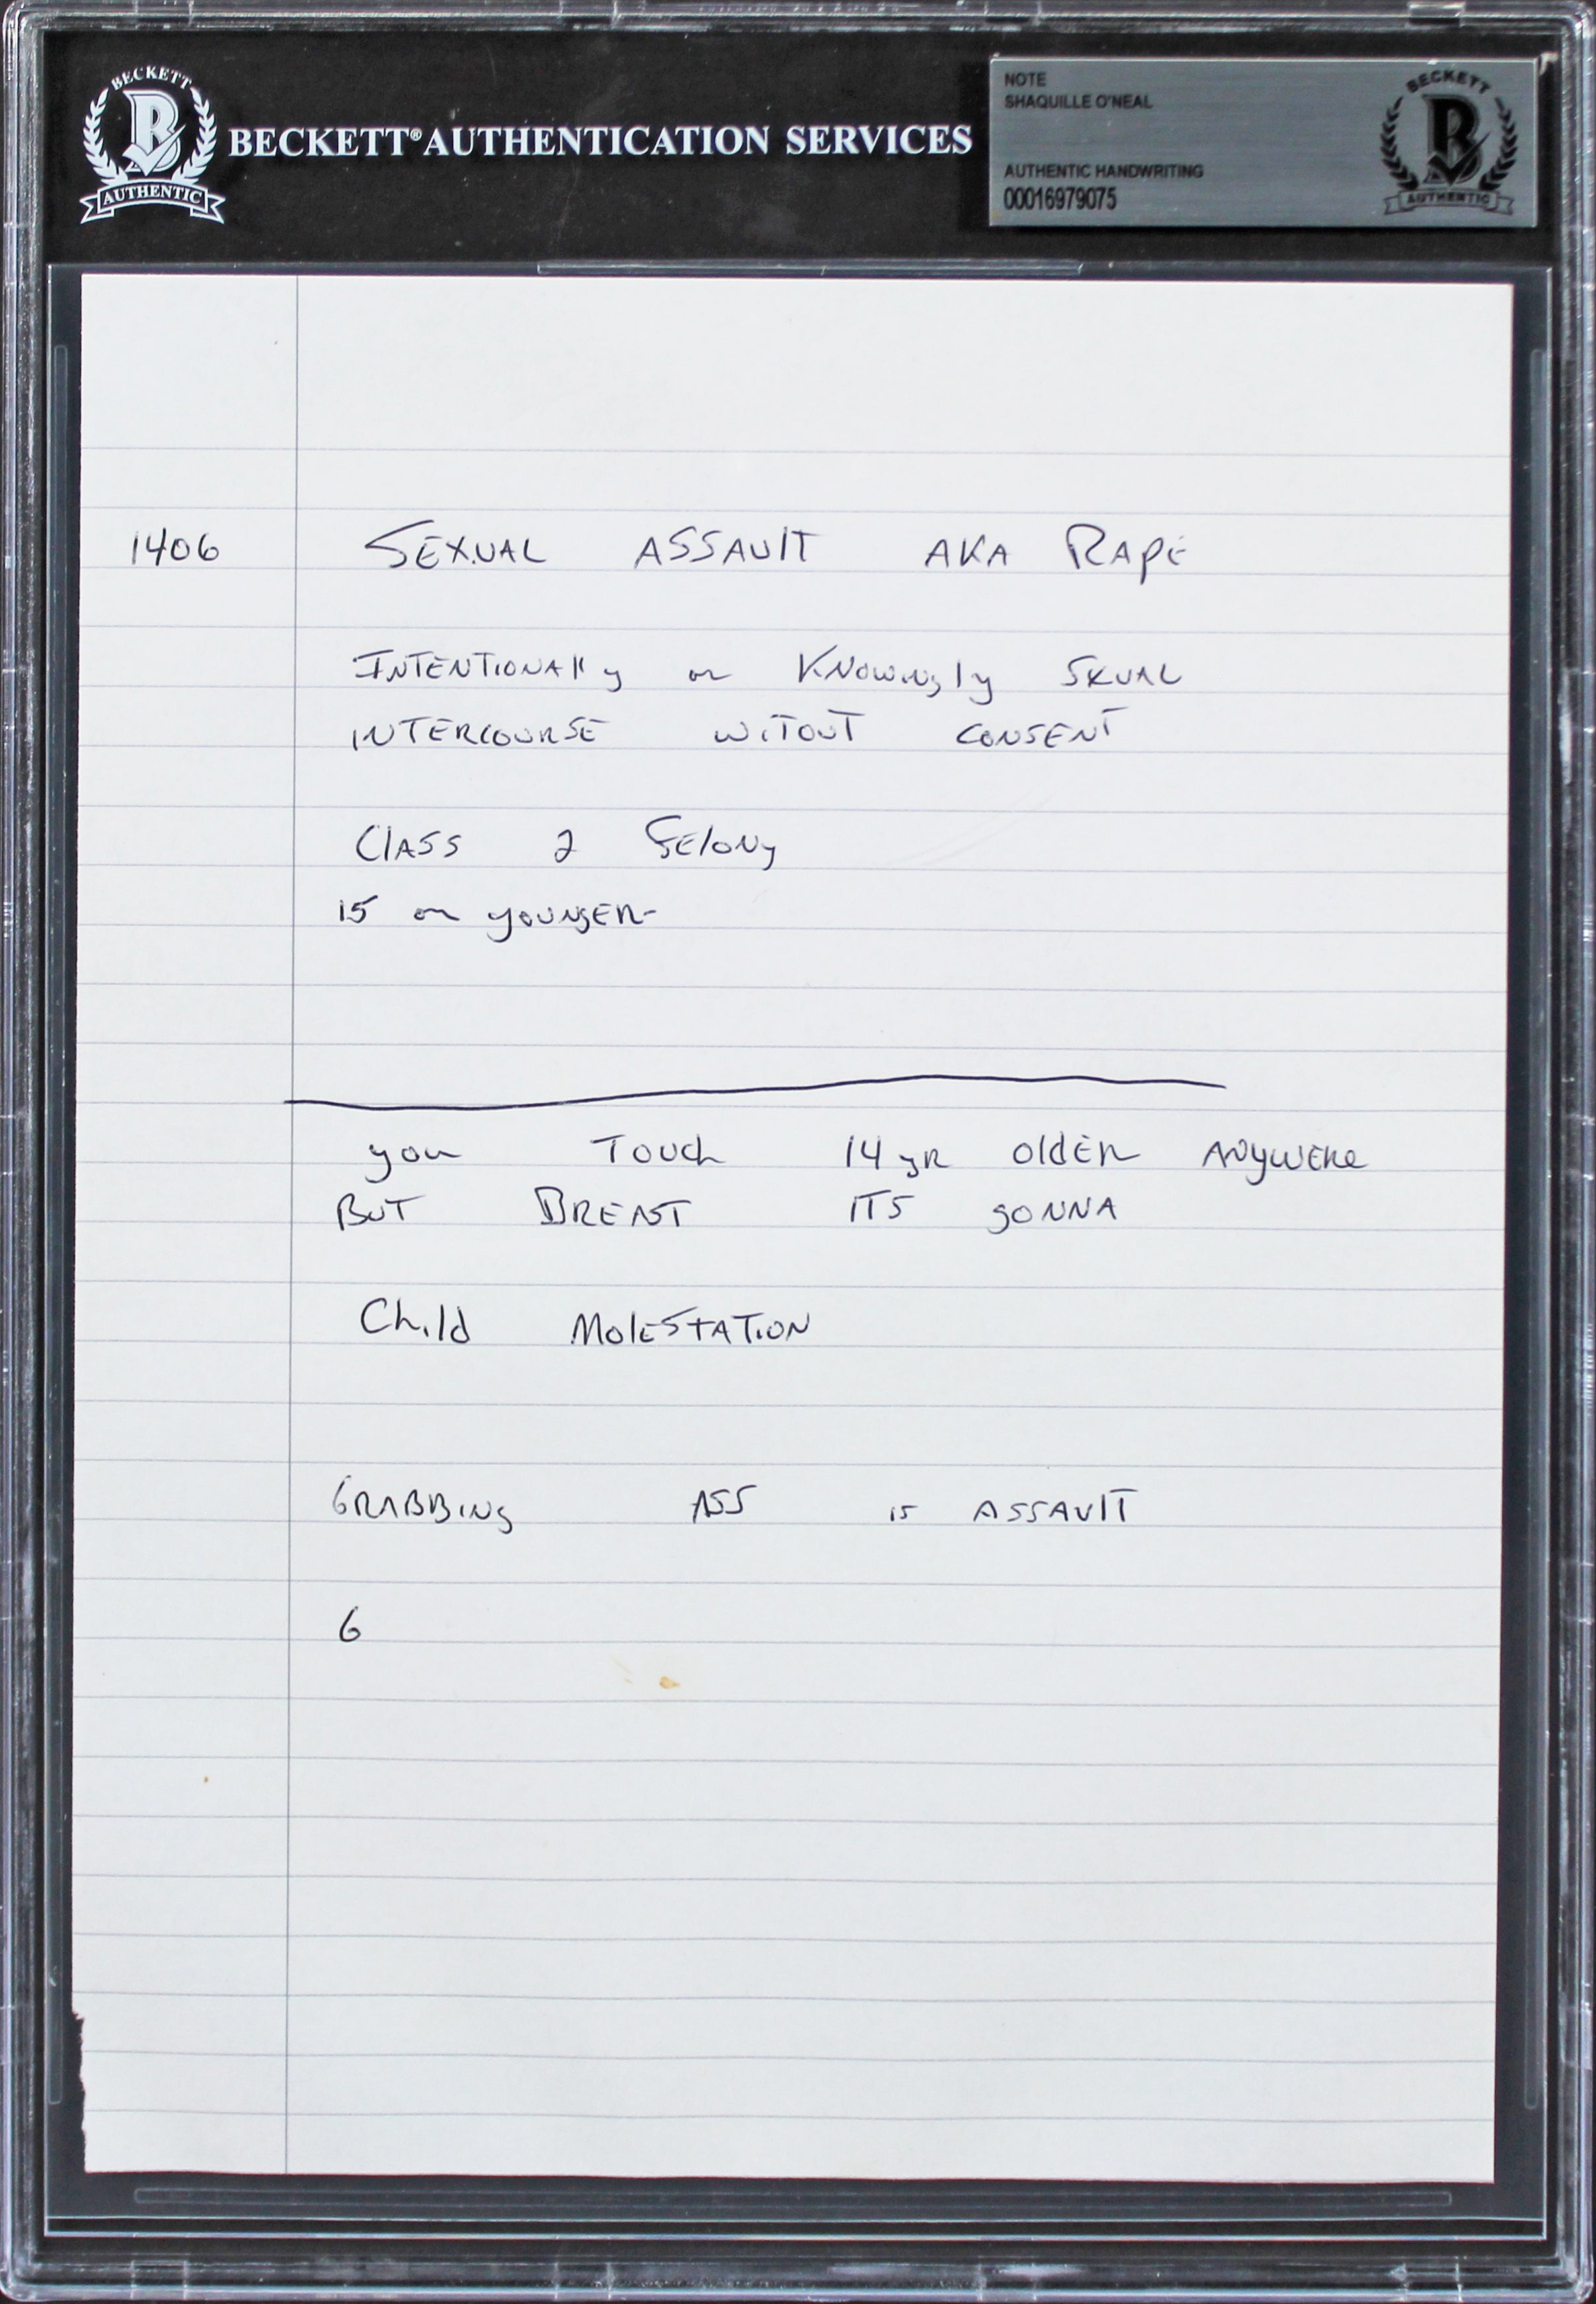 BECKETT
B
AUTHENTIC
BECKETT® AUTHENTICATION SERVICES
NOTE
SHAQUILLE O'NEAL
AUTHENTIC HANDWRITING
00016979075
BECKETT
B
AUTHENTIC
1406 SEXUAL ASSAULT AKA RAPE
INTENTIONAlly or KNOWINgly SXUAL
INTERCOURSE WITOUT CONSENT
ClASS 2 FElONy
15 or youNgER
you Touch 14 yR OldER ANyWERe
BUT BREAST ITS gONNA
Child MolESTATION
GRABBINg ASS is ASSAUlT
6